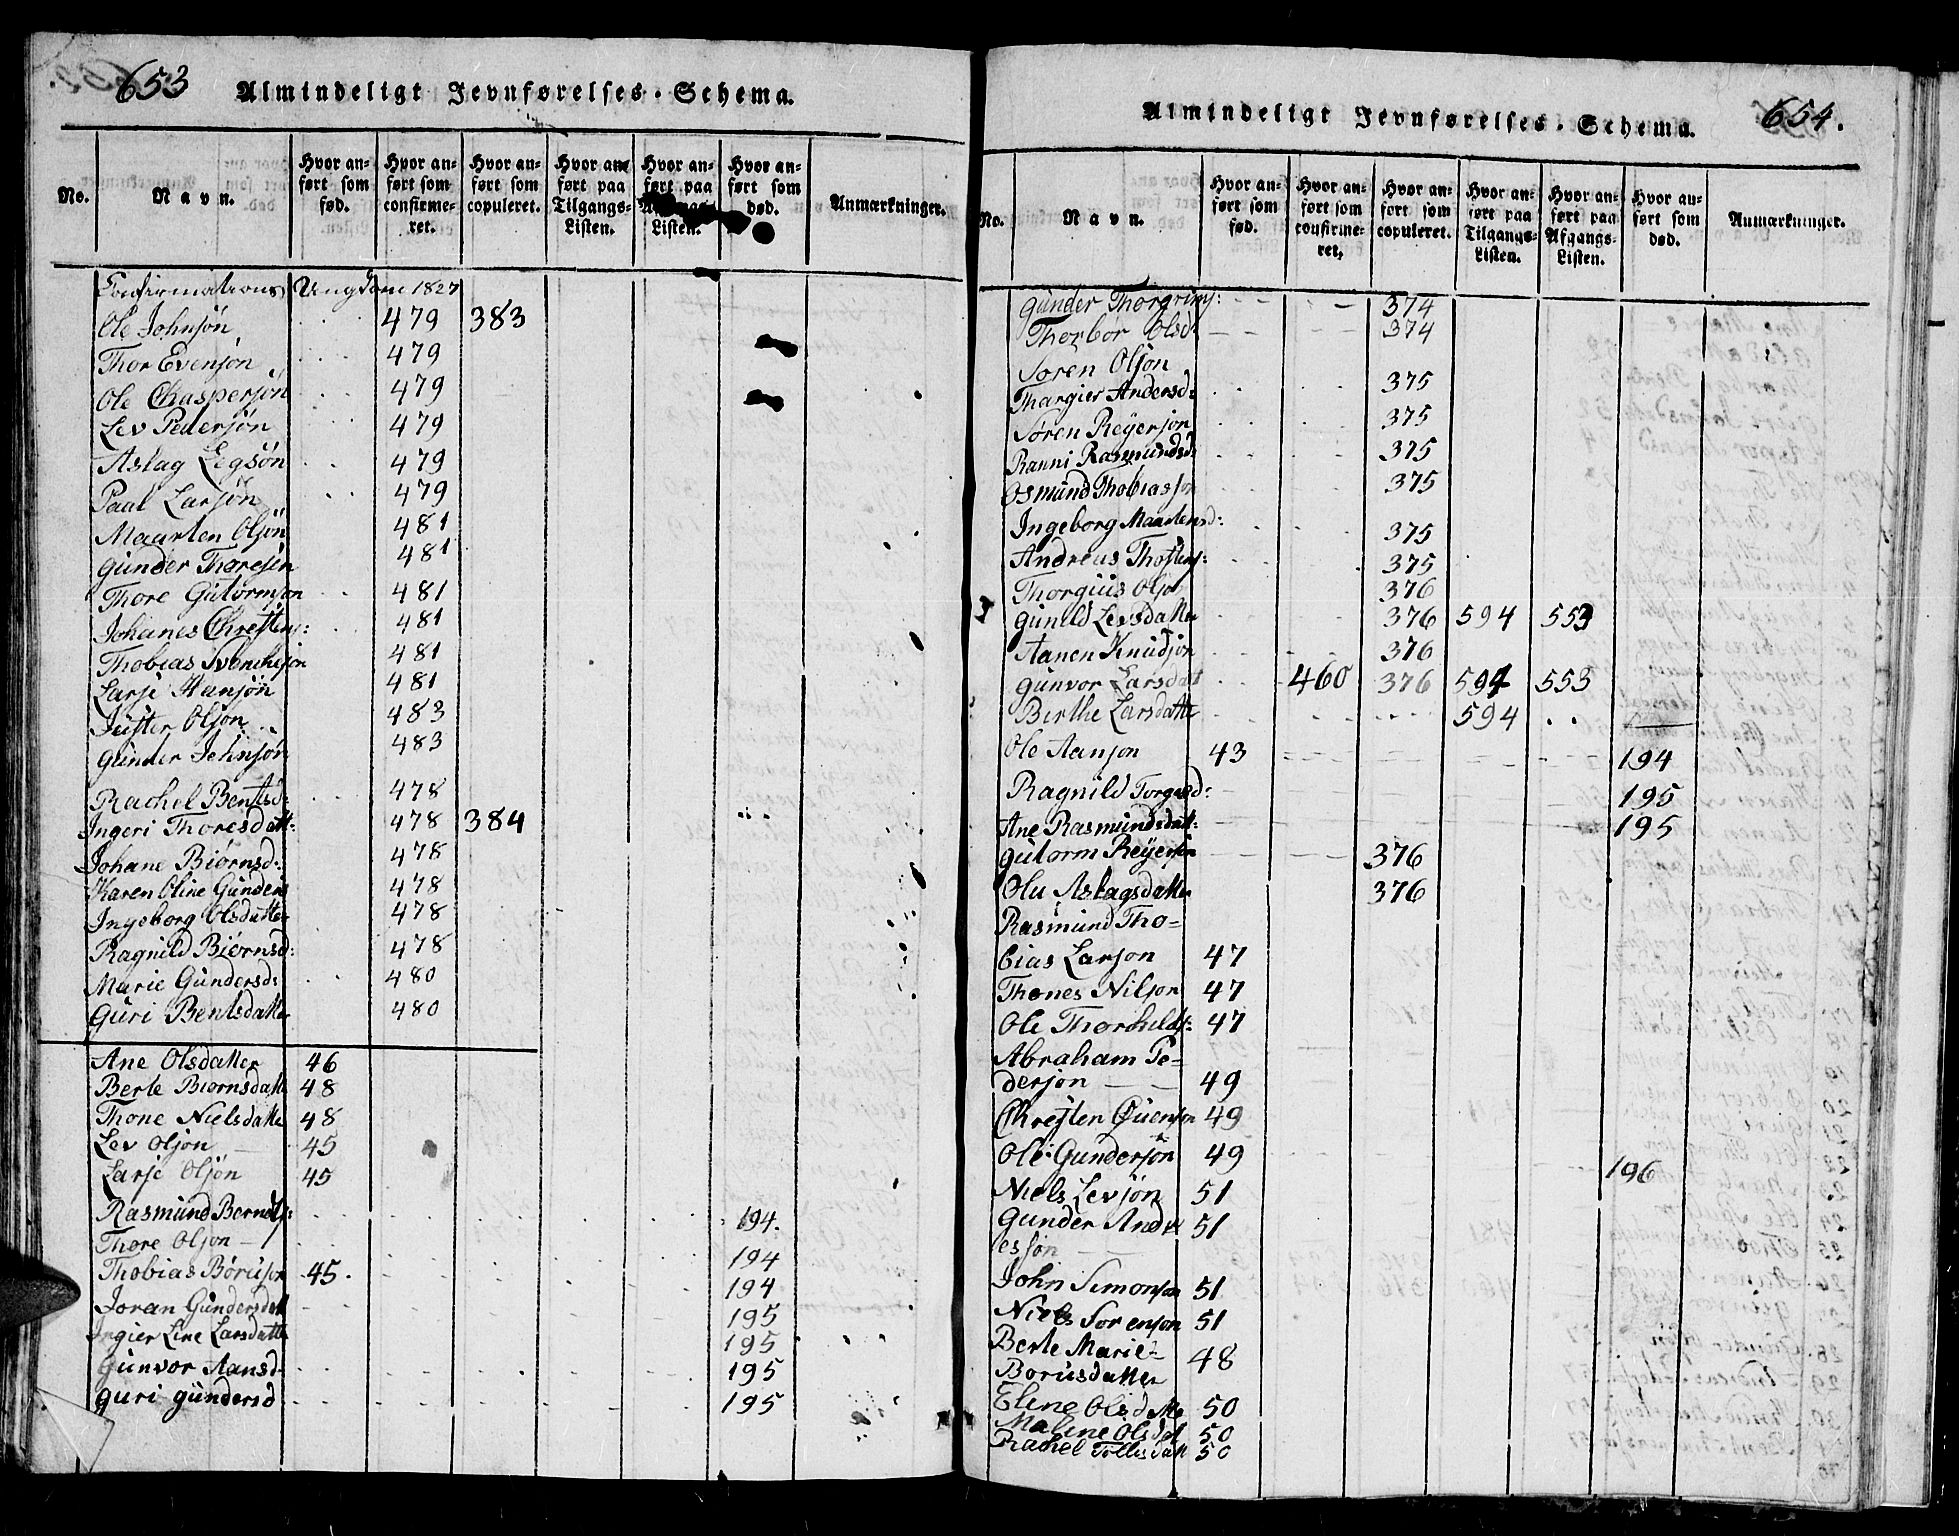 653
Almindeligt Jevnførelses-Schema.
No.
Navn.
Hvor anført som fød.
Hvor anført som confirmeret.
Hvor anført som copuleret.
Hvor anført paa Tilgangs-Listen.
Hvor anført paa Afgangs-Listen.
Hvor anført som død.
Anmærkninger.
Confirmations Ungdom 1827
Ole Johnsøn 479 383
Thor Evensøn 479
Ole Chaspersøn 479
Lev Pedersøn 479
Aslag Legsøn 479
Paal Larsøn 479
Maarten Olsøn 481
Gunder Thoresøn 481
Thore Gutormsøn 481
Johanes Chrestens: 481
Thobias 481
Larse Hansøn 481
Olson 483
Gunder Johnsøn 483
Rachel Bentsd: 478
Ingeri Thoresdatt: 478 384
Johane Biørnsd: 478
Karen Oline Gunders 478
Ingeborg Olsdatter 478
Ragnild Biørnsd: 478
Marie Gundersd: 480
Guri Bentsdatter 480
Ane Olsdatter 46
Berte Biørnsdatte 48
Thone Nielsdatte 48
Lev Olson 45
Larse Olsøn 45
Rasmund Bernts: 194.
Thore Olson 194
Thobias 45. 194
Joran Gundersdatt 195
Ingier Line Larsdatte 195
Gunvor Aansd 195
Guri Gundersd 195
654.
Almindeligt Jevnførelses-Schema.
No.
Navn.
Hvor anført som fød.
Hvor anført som confirmeret.
Hvor anført som copuleret.
Hvor anført paa Tilgangs-Listen.
Hvor anført paa Afgangs-Listen.
Hvor anført som død.
Anmærkninger.
Gunder Thorgrims: 374
Thorbor Olsd: 374
Søren Olson
Thargier Andersd: 375
Søren Reyerson 375
Ranni Rasmundsd: 375
Osmund Thobiasson 375
Ingeborg Maartensd: 375
Andreas Thostens: 375
Thorgius Olson 376
Gunild Levsdatter 376 594 553
Aanen Knudson 376
Gunvor Larsdat 460 376 594 553
Berthe Larsdatte 594
Ole Aanson 43 194
Ragnild Torgusd: 195
Ane Rasmundsdatt: 195
Gutorm Reyerson 376
Olu Aslagsdatter 376
Rasmund Tho=
bias Larson 47
Thones Nilson 47
Ole Thorkelds: 47
Abraham Pe=
derson 49
Chresten 49
Ole Gundersøn 49 196
Niels Levsøn 51
Gunder Andr 51
esson
John Simonson 51
Niels Sorenson 51
Berte Marie=
Borusdatter 48
Eline Olsdatte 50
Maline Olsdat 50
Rachel Tollisdatt 50